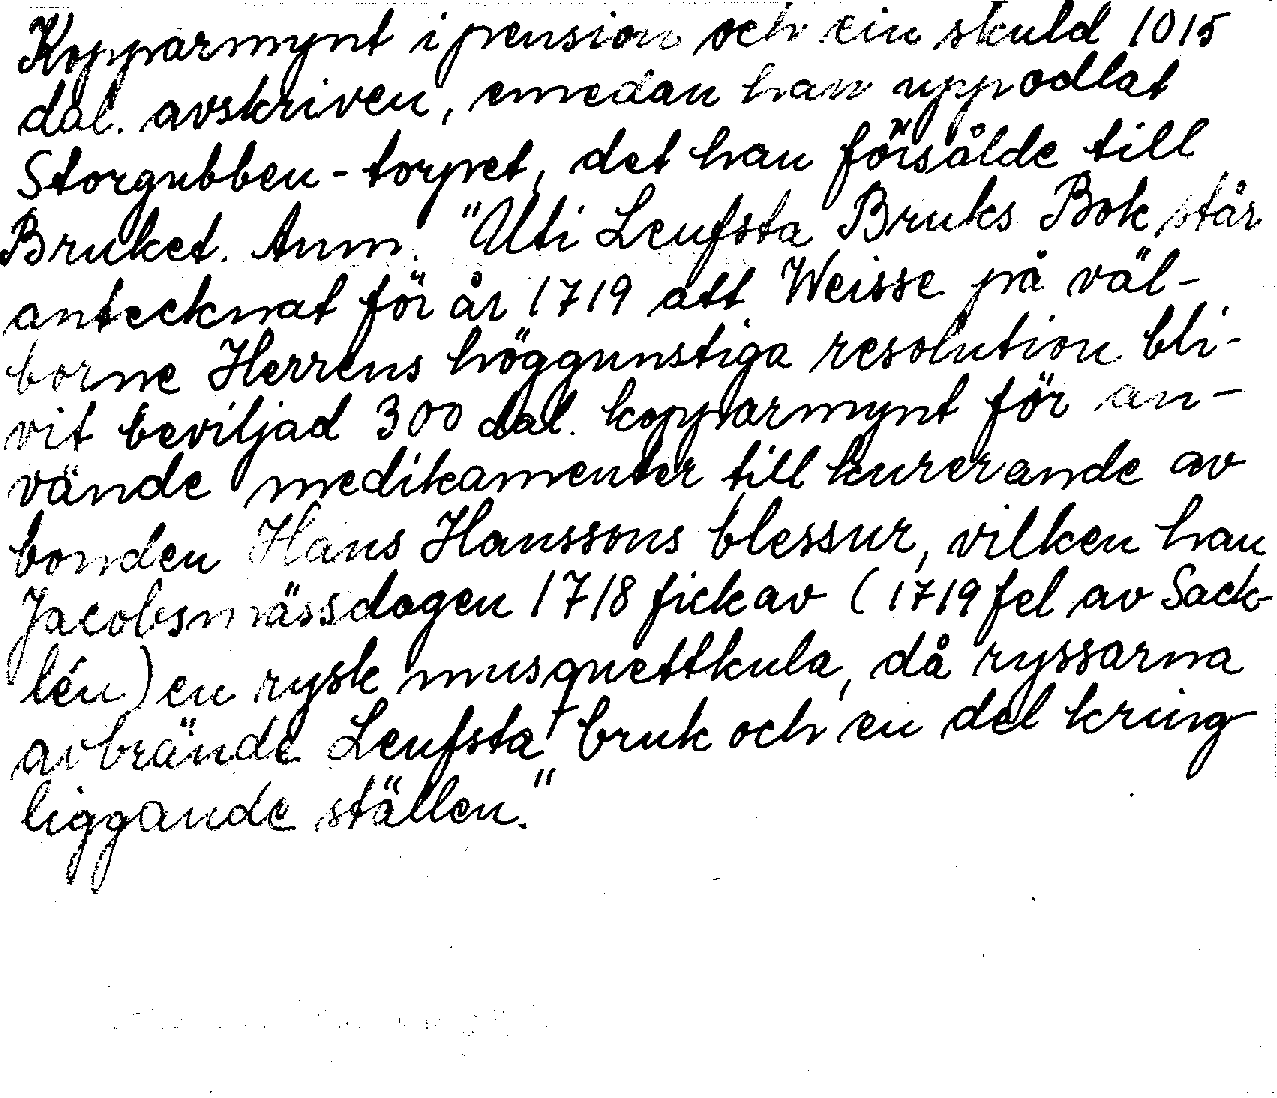 Kopparmynt i pension och ein skuld 1015
dal. avskriven, emedan han uppodlat
Storgubben-torpet, det han försålde till
Bruket. Anm. "Uti Leufsta Bruks Bok står
antecknat för år 1719 att Weisse på väl-
borne Herrens höggunstiga resolution bli-
vit beviljad 300 dal. kopparmynt för an-
vände medikamenter till kurerande av
bonden Hans Hanssons blessur, vilken han
Jacobsmässdagen 1718 fick av (1719 fel av Sack-
lén) en rysk musquettkula, då ryssarna
avbrände Leufsta bruk och en del kring
liggande ställen."